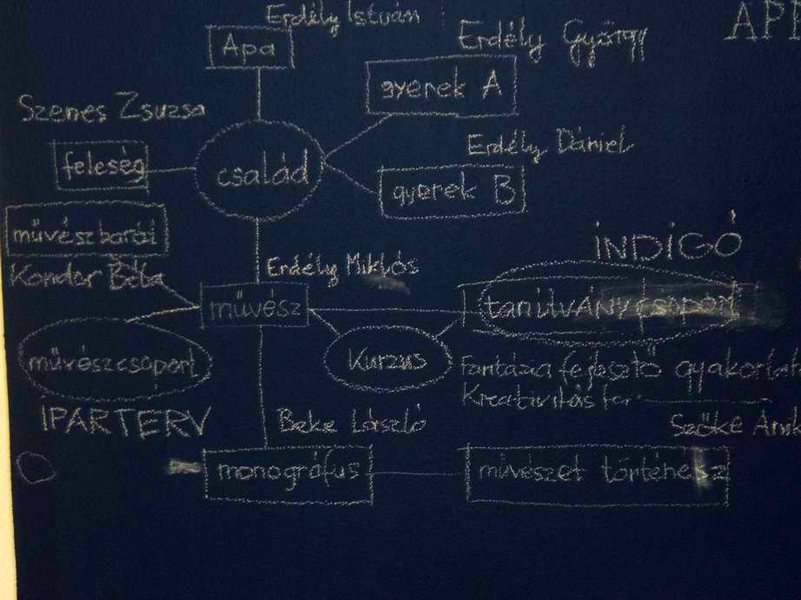 Erdély István
Apa
Erdély György
gyerek A
Szenes Zsuzsa
feleség
család
Erdély Dániel
gyerek B
művészbarát
Kondor Béla
Erdély Miklós
művész
INDIGÓ
tanítványcsoport
művészcsoport
IPARTERV
Kurzus
Fantázia fejlesztő gyakorlat
Kreativitás
Beke László
Szőke
monográfus
művészet történész